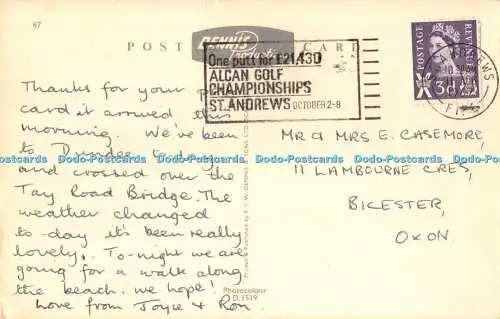 67
POST CARD
DENNIS
Productions
One putt for £21,430
ALCAN GOLF
CHAMPIONSHIPS
ST. ANDREWS OCTOBER 2-8
POSTAGE
REVENUE
3D
ANDREWS
FIFE
Thanks for your
card it arrived this
morning. We've been
to Dundee to-day
and crossed over the
Tay Road Bridge. The
weather changed
to-day it's been really
lovely. To-night we are
going for a walk along
the beach, we hope!
Love from Joyce & Ron.
Photocolour
D.1519
MR & MRS E. CASEMORE,
11 LAMBOURNE CRES,
BICESTER,
OXON.
Docs-Postcards.com